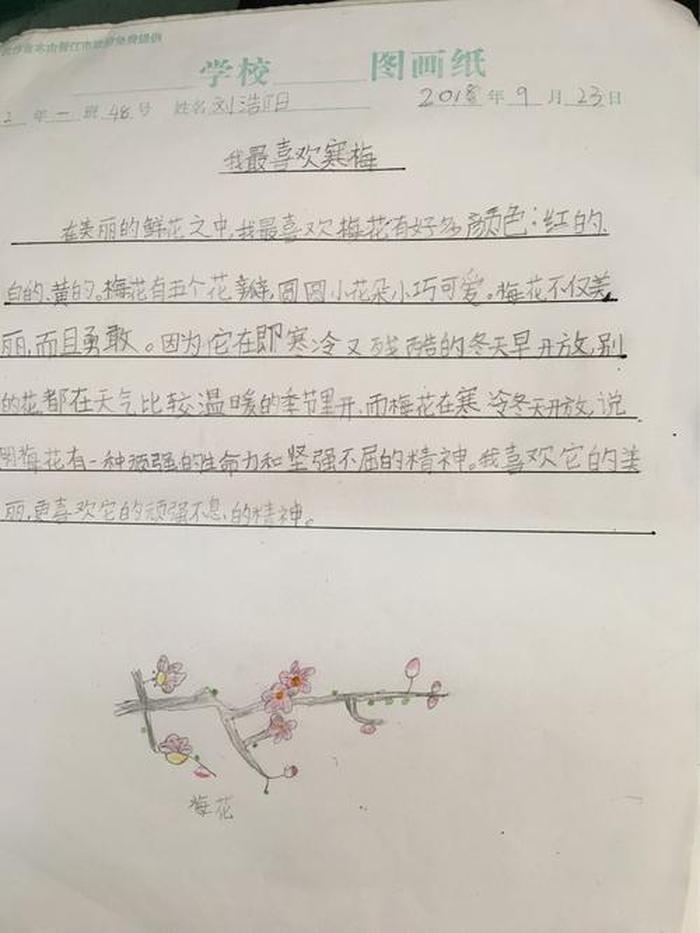 学校 图画纸
2 年一班48号 姓名刘浩阳 2018年9月23日
我最喜欢寒梅
在美丽的鲜花之中,我最喜欢梅花有好多颜色:红的、
白的、黄的。梅花有五个花瓣,圆圆小花朵小巧可爱。梅花不仅美
丽,而且勇敢。因为它在即寒冷又残酷的冬天早开放,别
的花都在天气比较温暖的季节里开,而梅花在寒冷冬天开放,说
明梅花有一种顽强的生命力和坚强不屈的精神。我喜欢它的美
丽,更喜欢它的顽强不息的精神。
梅花